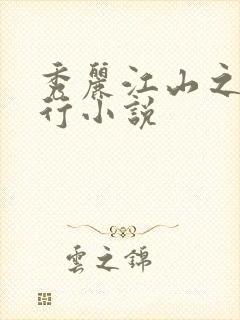 秀麗江山之
行小說
雲之錦